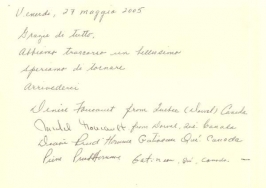 Venerdi, 27 maggio 2005
Grazie di tutto.
Abbiamo trascorso un bellissimo
speriamo di tornare
Arrivederci
Denise Foucault from Québec (Sorel) Canada
Michel Foucault from Sorel, Canada
Denise Gatineau Qué Canada
Pierre Gatineau, Qué, Canada